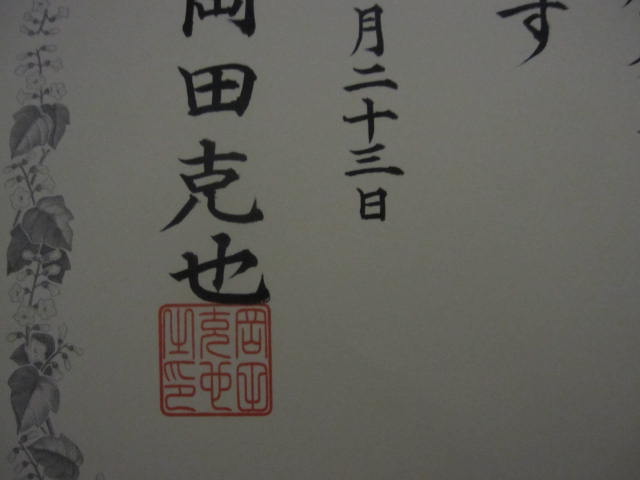 す
月二十三日
岡田克也
岡田
克也
之印